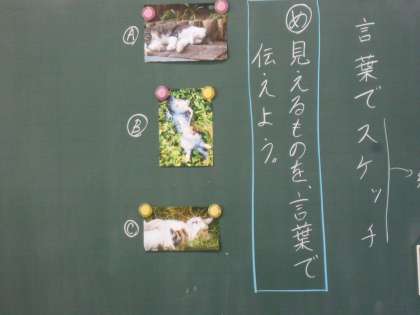 言葉でスケッチ
め 見えるものを、言葉で
伝えよう。
A
B
C